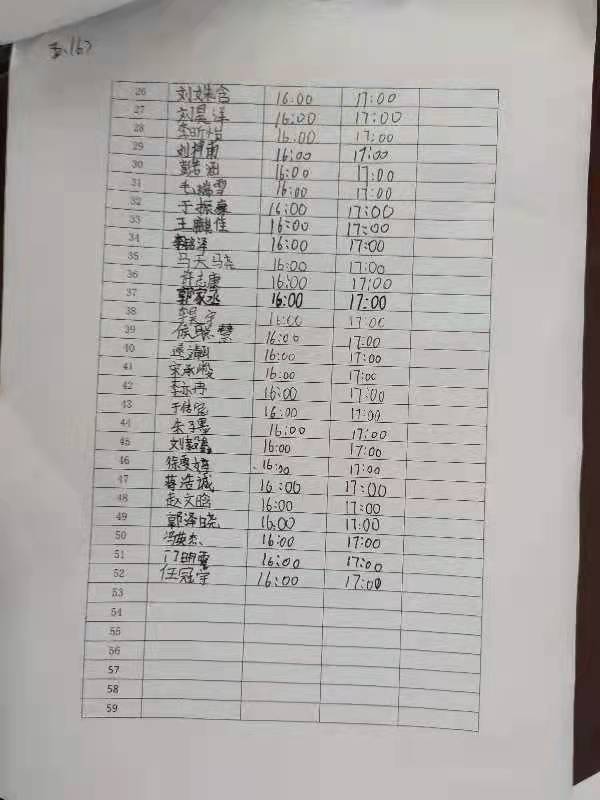 26 刘姝含 16:00 17:00
27 刘昊洋 16:00 17:00
28 李昕怡 16:00 17:00
29 刘梓雨 16:00 17:00
30 16:00 17:00
31 毛瑞雪 16:00 17:00
32 于振豪 16:00 17:00
33 王麒佳 16:00 17:00
34 16:00 17:00
35 马天骁 16:00 17:00
36 许志康 16:00 17:00
37 郭家丞 16:00 17:00
38 16:00 17:00
39 16:00 17:00
40 16:00 17:00
41 宋承骏 16:00 17:00
42 李亦冉 16:00 17:00
43 16:00 17:00
44 朱子墨 16:00 17:00
45 16:00 17:00
46 16:00 17:00
47 蒋浩诚 16:00 17:00
48 赵文晗 16:00 17:00
49 郭泽晓 16:00 17:00
50 冯英杰 16:00 17:00
51 16:00 17:00
52 任冠宇 16:00 17:00
53
54
55
56
57
58
59